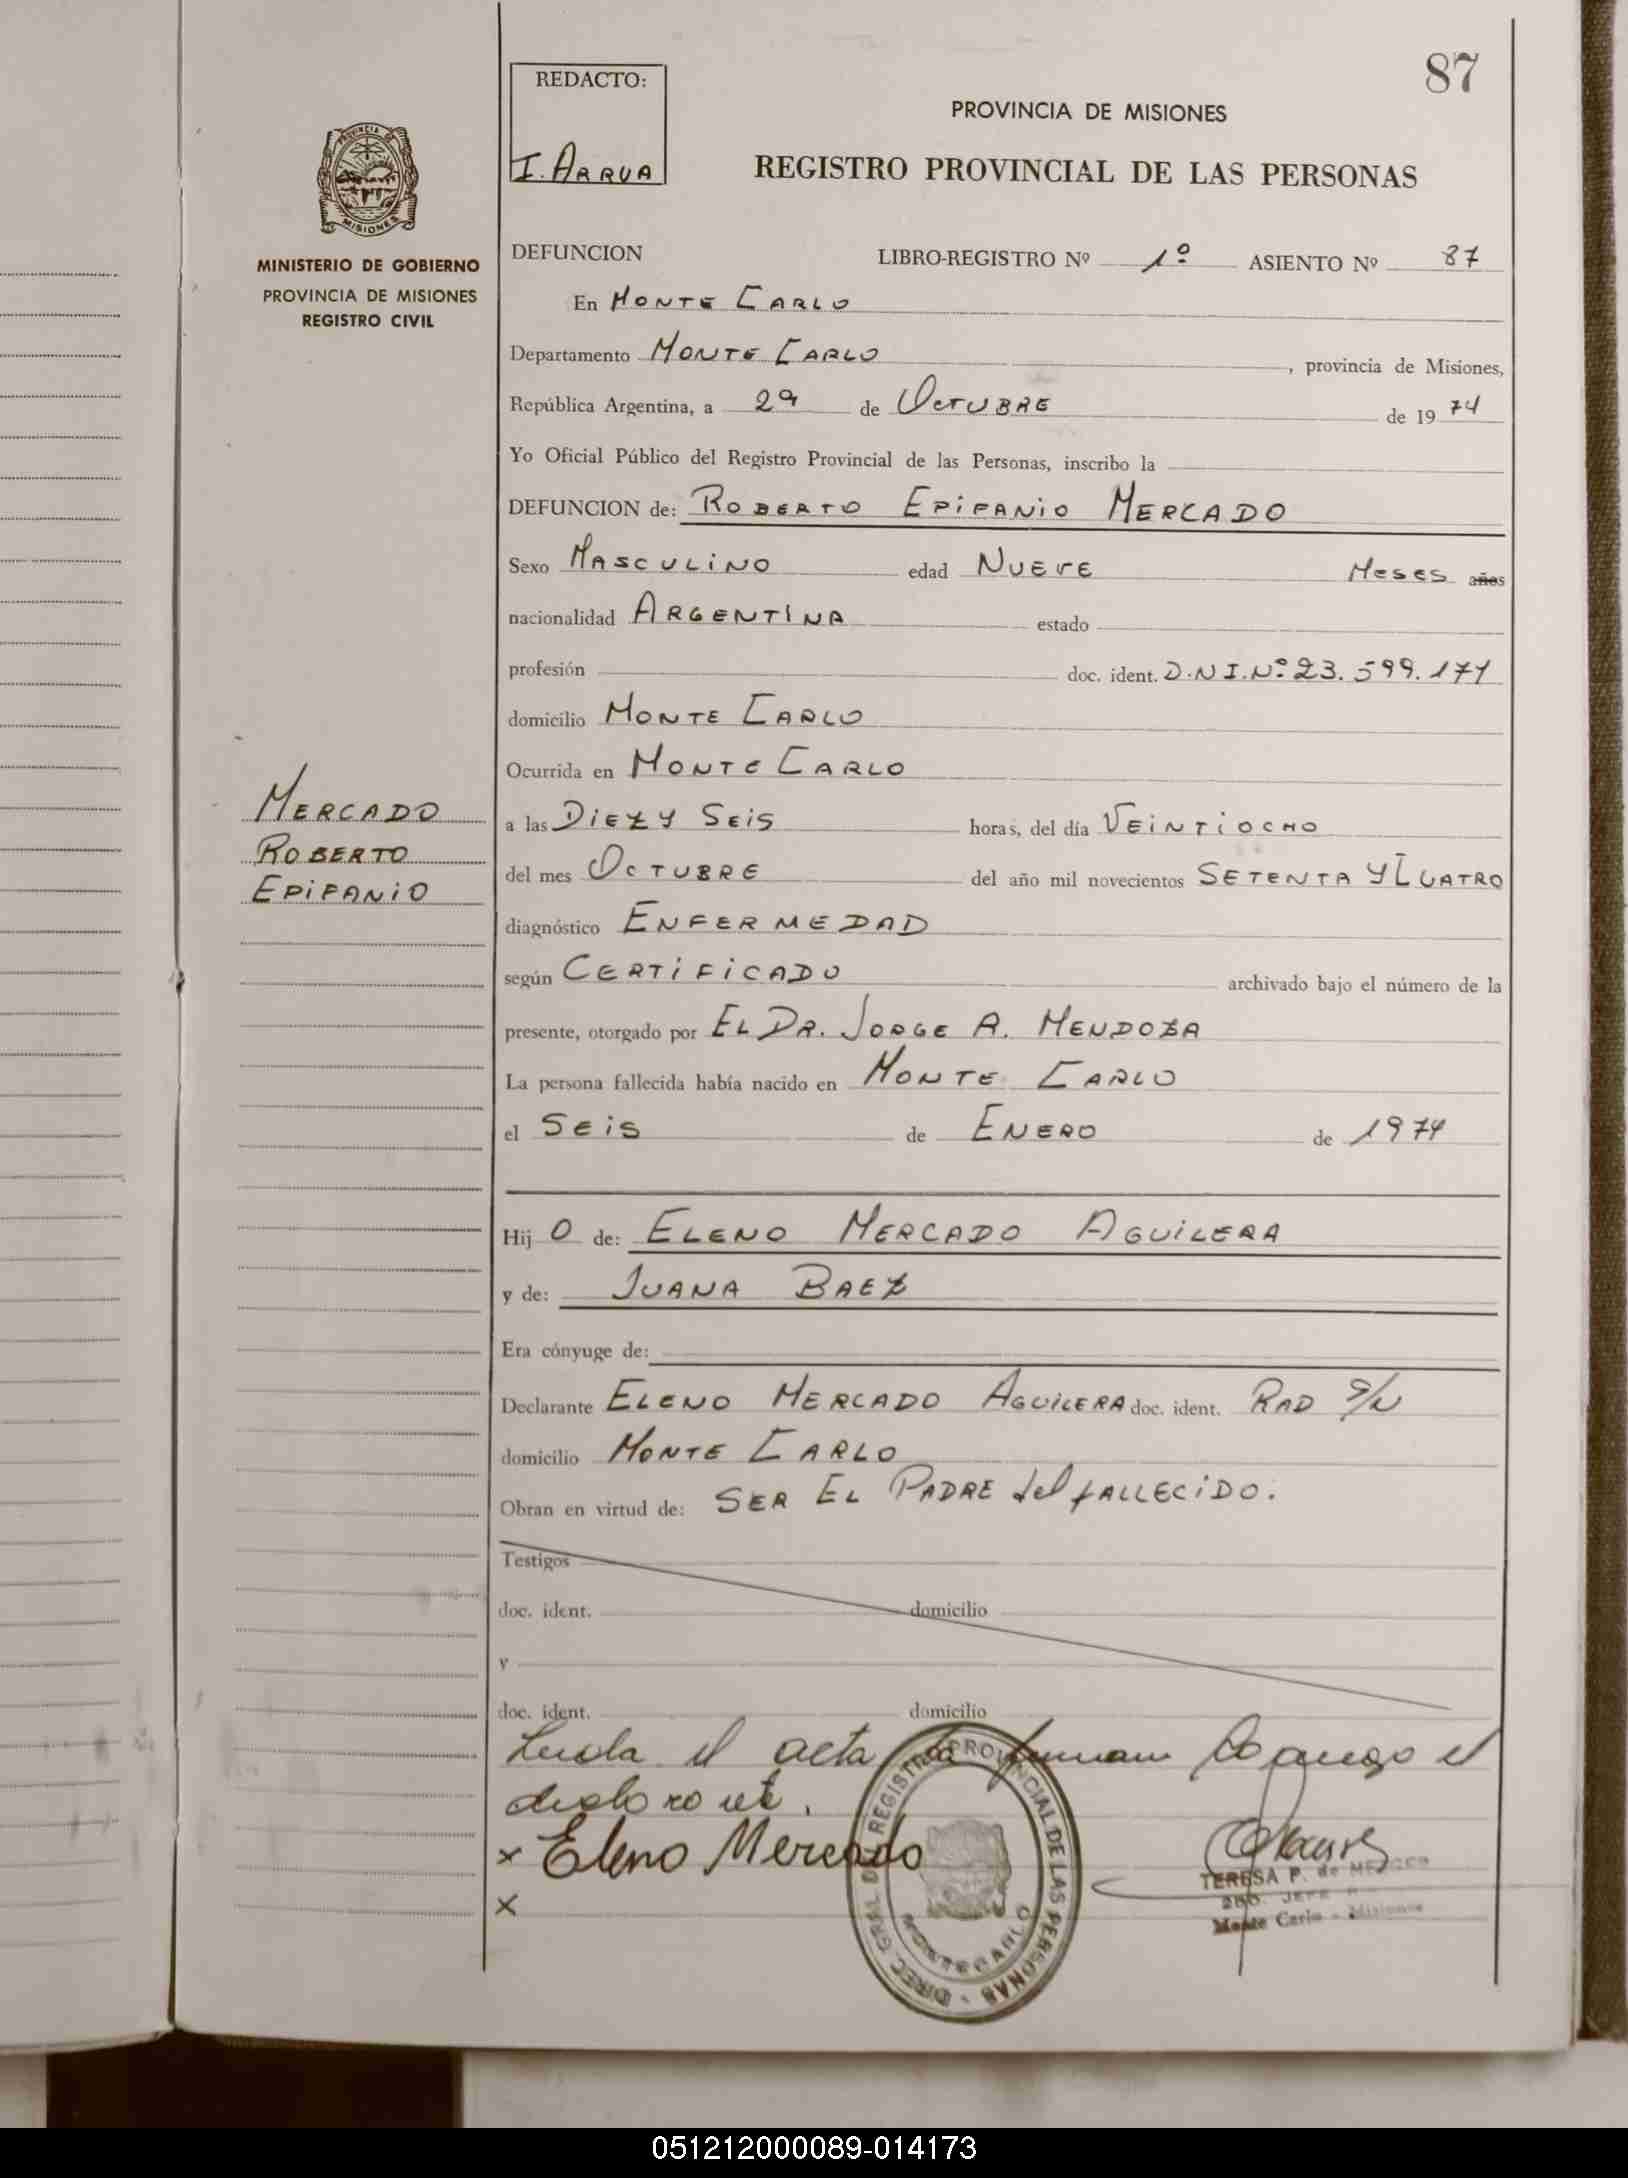 87
REDACTO:
I. ARRUA
PROVINCIA DE MISIONES
REGISTRO PROVINCIAL DE LAS PERSONAS
PROVINCIA DE
MISIONES
MINISTERIO DE GOBIERNO
PROVINCIA DE MISIONES
REGISTRO CIVIL
DEFUNCION LIBRO-REGISTRO Nº 1º ASIENTO Nº 87
En MONTE CARLO
Departamento MONTE CARLO, provincia de Misiones,
República Argentina, a 29 de OCTUBRE de 19 74
Yo Oficial Público del Registro Provincial de las Personas, inscribo la
DEFUNCION de: ROBERTO EPIFANIO MERCADO
Sexo MASCULINO edad NUEVE MESES años
nacionalidad ARGENTINA estado
profesión doc. ident. D.N.I.Nº 23.599.171
domicilio MONTE CARLO
Ocurrida en MONTE CARLO
a las DIEZ Y SEIS horas, del día VEINTIOCHO
del mes OCTUBRE del año mil novecientos SETENTA Y CUATRO
diagnóstico ENFERMEDAD
según CERTIFICADO archivado bajo el número de la
presente, otorgado por EL DR. JORGE A. MENDOZA
La persona fallecida había nacido en MONTE CARLO
el SEIS de ENERO de 1974
MERCADO
ROBERTO
EPIFANIO
Hij O de: ELENO MERCADO AGUILERA
y de: JUANA BAEZ
Era cónyuge de:
Declarante ELENO MERCADO AGUILERA doc. ident. RAD S/N
domicilio MONTE CARLO
Obran en virtud de: SER EL PADRE del fALLECIDO.
Testigos
doc. ident. domicilio
y
doc. ident. domicilio
Leida el acta la firman Conmigo el
declarante.
x Eleno Mercado
x
DIREC. GRAL. DEL REGISTRO PROVINCIAL DE LAS PERSONAS
MONTE CARLO
TERESA P. de
JEFE
Monte Carlo - Misiones
051212000089-014173